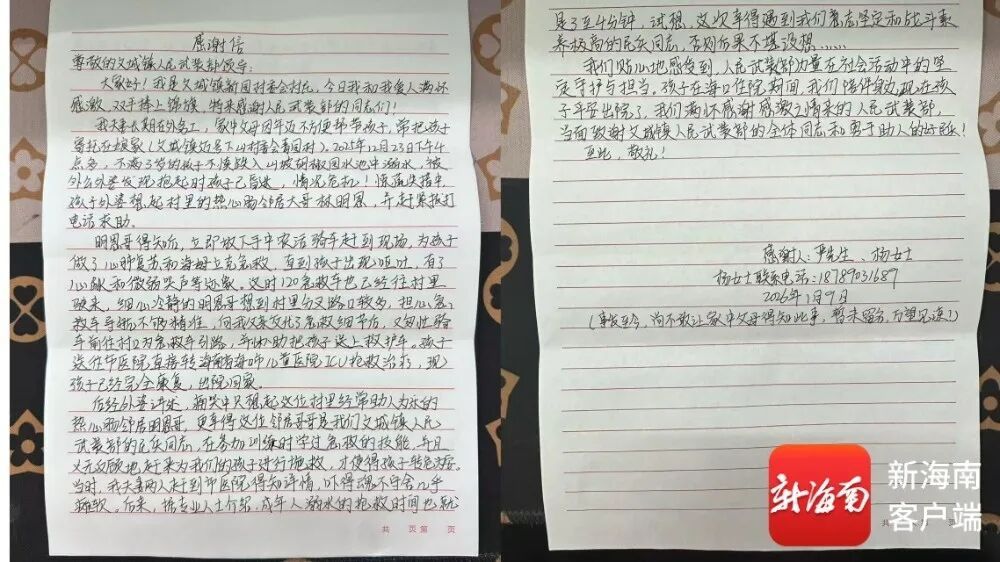 感谢信
尊敬的文城镇人民武装部领导：
大家好！我是文城镇新园村委会村民，今日我和我爱人满怀
感激，双手捧上锦旗，特来感谢人民武装部的同志们！
我夫妻长期在外务工，家中父母因年迈不方便帮带孩子，常把孩子
寄托在娘家（文城镇边号下山村委会青园村）。2025年12月23日下午4
点多，不满3岁的孩子不慎跌入山坡胡椒园水池中溺水，被
外公外婆发现抱起时孩子已昏迷，情况危机！惊慌失措中，
孩子外婆想起村里的热心肠邻居大哥林明恩，并赶紧拨打
电话求助。
明恩哥得知后，立即放下手中农活骑车赶到现场，为孩子
做了心肺复苏和海姆立克急救，直到孩子出现呕吐，有了
心跳和微弱哭声等迹象。这时120急救车也已经往村里
驶来，细心冷静的明恩哥想到村里分叉路口较多，担心急
救车导航不够精准，向我父亲交代好急救细节后，又匆忙骑
车前往村口为急救车引路，并协助把孩子送上救护车。孩子
送往市医院直接转海南省海口市儿童医院ICU抢救治疗，现
孩子已经完全康复，出院回家。
后经外婆讲述，痛哭中只想起这位村里经常助人为乐的
热心肠邻居明恩哥，更幸得这位邻居哥哥是我们文城镇人民
武装部的民兵同志，在参加训练时学过急救的技能，并且
义无反顾地赶来为我们的孩子进行施救，才使得孩子转危为安。
当时，我夫妻两人赶到市医院得知详情，吓得魂不守舍几乎
瘫软，后来，据专业人士介绍，成年人溺水的抢救时间也就
共 页 第 页
是3至4分钟，试想，这次幸得遇到我们意志坚定和战斗素
养极高的民兵同志，否则后果不堪设想……
我们贴心地感受到，人民武装部力量在社会活动中的坚
定守护与担当。孩子在海口住院期间，我们陪伴身边，现在孩
子平安出院了，我们满怀感谢感激之情来向人民武装部，
当面致谢文城镇人民武装部的全体同志和勇于助人的好民兵！
至此，敬礼！
感谢人：严先生、杨女士
杨女士联系电话：18789031687
2026年1月9日
（事发至今，尚不敢让家中父母得知此事，暂未留名，万望见谅！）
共
新海南
新海南
客户端